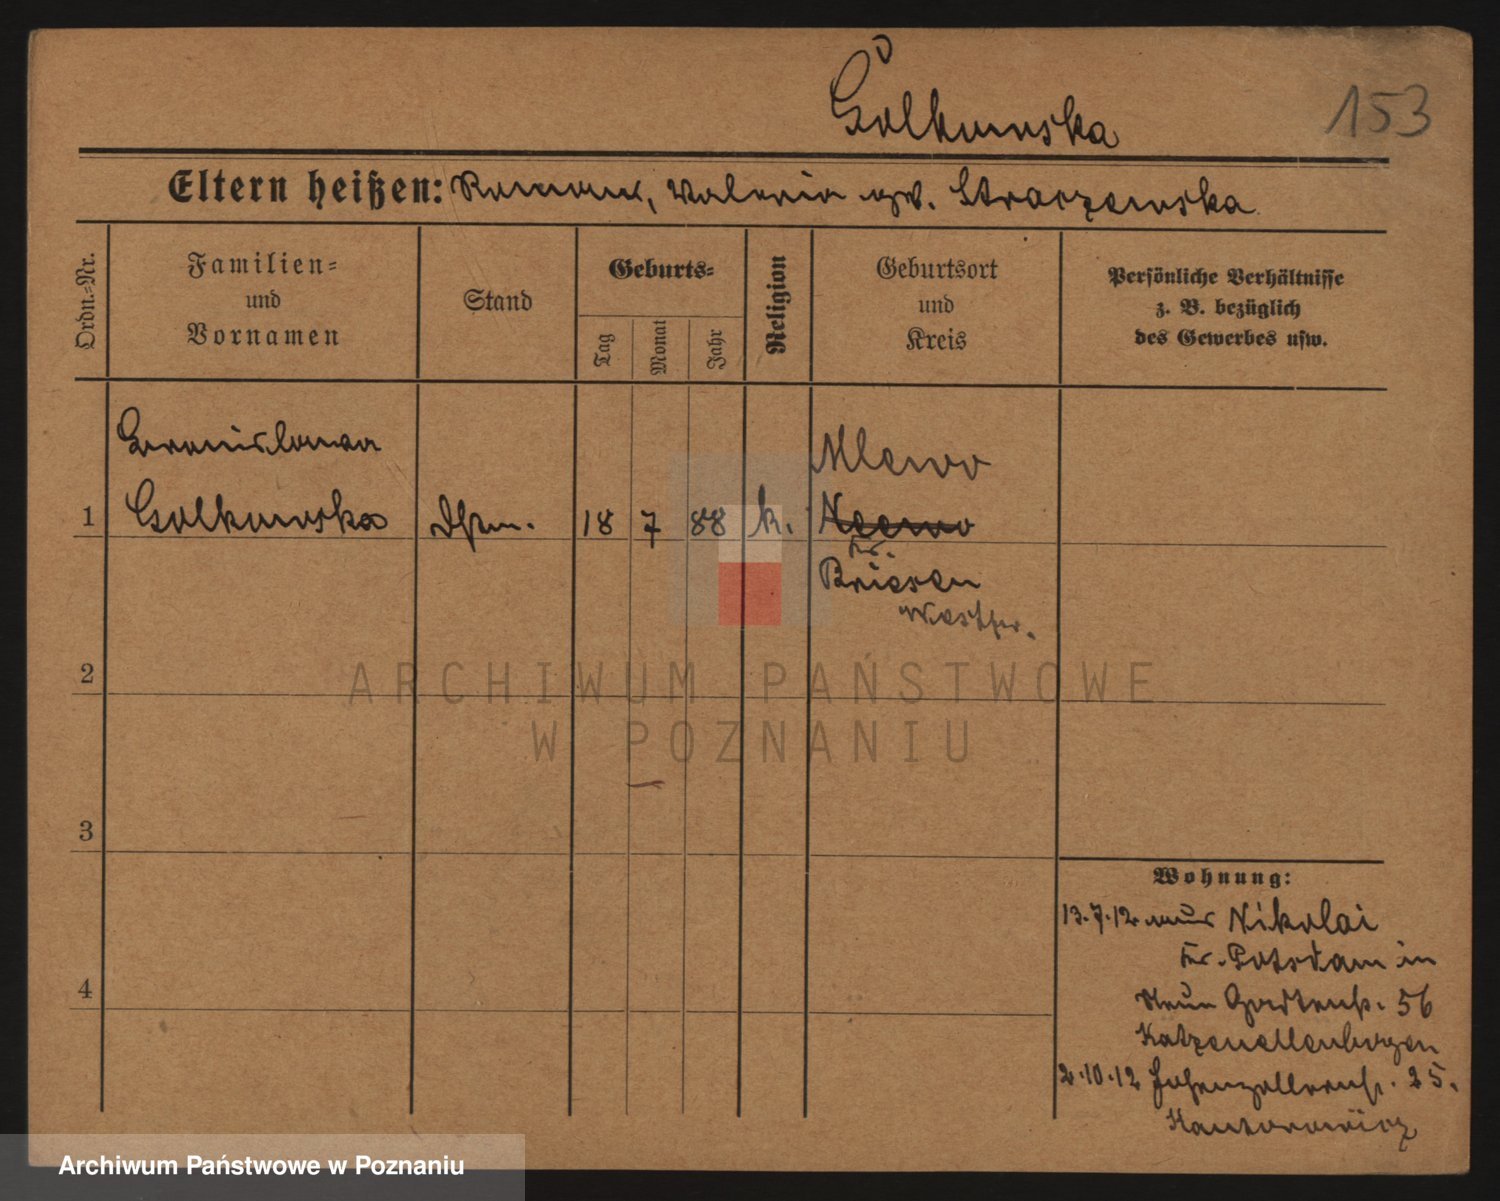 Golkowska
153
Eltern heißen: Roman, Valeria geb. Straszewska
Ordn.-Nr.
Familien- und Vornamen
Stand
Geburts-
Tag
Monat
Jahr
Religion
Geburtsort und Kreis
Persönliche Verhältnisse
z. B. bezüglich
des Gewerbes usw.
Bronislawa
Mlewo
1
Golkowska
18
7
88
k.
Kr.
Briesen
Westpr.
2
ARCHIWUM PAŃSTWOWE
W POZNANIU
3
Wohnung:
13.7.12 aus Nikolai
Kr. Potsdam in
56
4
Katzenellenbogen
2.10.12 Hohenzollernstr. 25.
Kantorowicz
Archiwum Państwowe w Poznaniu